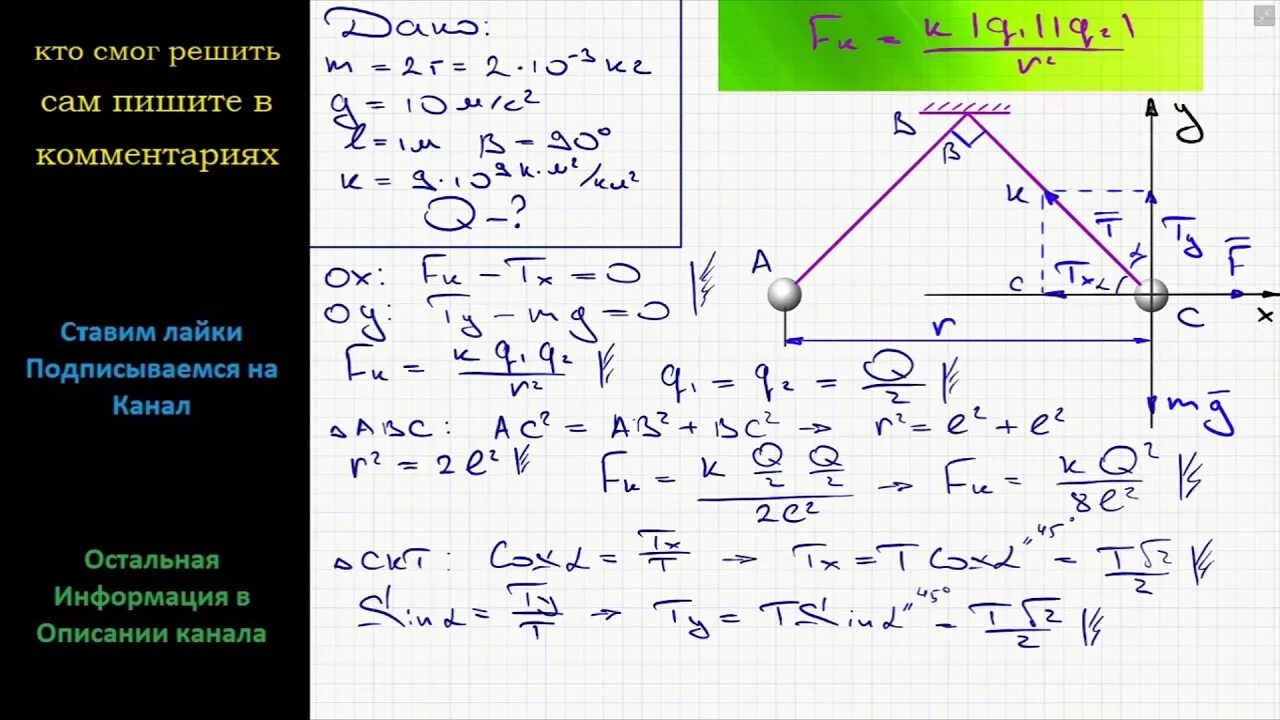 кто смог решить
сам пишите в
комментариях
Ставим лайки
Подписываемся на
Канал
Остальная
Информация в
Описании канала
Дано:
m = 2г = 2·10⁻³ кг
g = 10 м/с²
l = 1м B = 90°
к = 9·10⁹ к·м²/кл²
Q – ?
Fк = к |q₁||q₂| / r²
B
B
y
К
T̄
Tу
F̄
A
α
с
Tx
α
C
x
r
mḡ
ох: Fк – Tx = 0
оу: Ty – mg = 0
Fк = к q₁ q₂ / r²
q₁ = q₂ = Q/2
△ABC: AC² = AB² + BC² → r² = l² + l²
r² = 2l²
Fк = к Q/2 Q/2 / 2l² → Fк = к Q² / 8l²
△СКТ: Cosα = Tx/T → Tx = T Cosα "45° = T√2/2
Sinα = Ty/T → Ty = T Sinα "45° = T√2/2